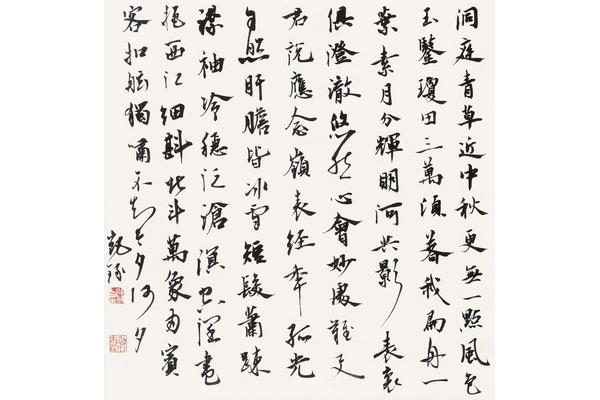 洞庭青草近中秋更無一點風色
玉鑒瓊田三萬頃著我扁舟一
葉素月分輝明河共影表裏
俱澄澈悠然心會妙處難與
君說應念嶺表經年孤光
自照肝膽皆冰雪短髮蕭踈
襟袖冷穩泛滄溟空闊盡
挹西江細斟北斗萬象為賓
客扣舷獨嘯不知今夕何夕